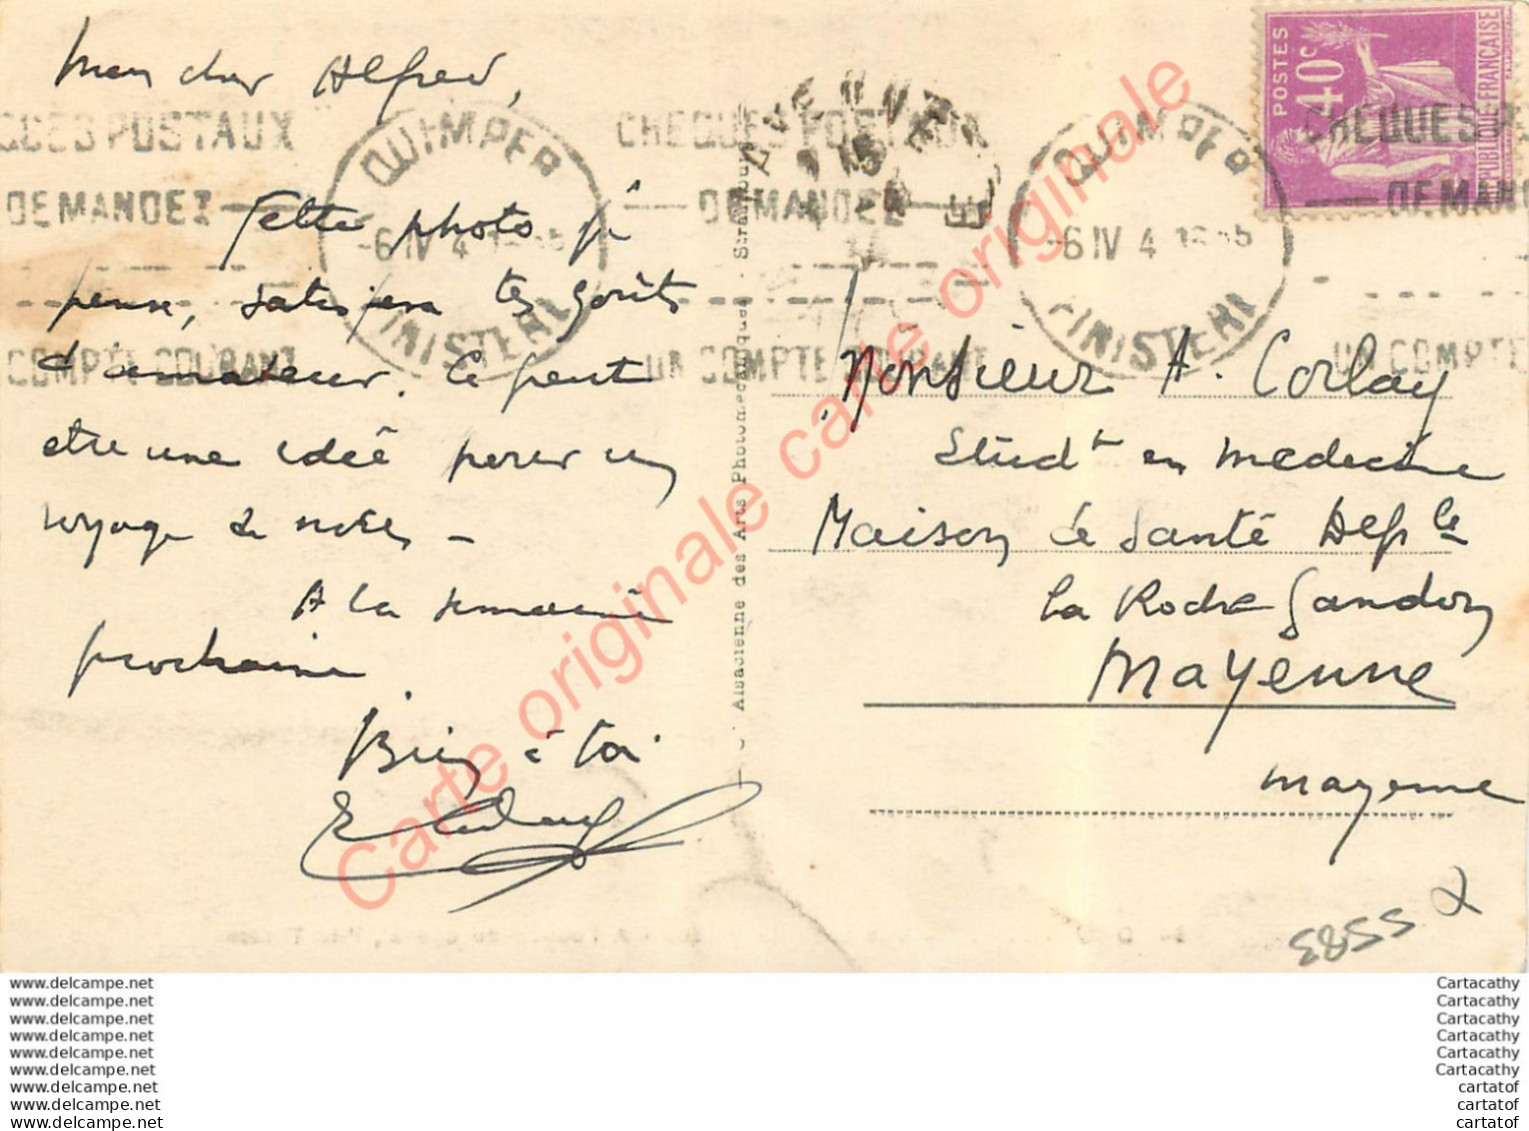 Mon cher Alfred,
Cette photo je
pense, satisfera tes goûts
d'amateur. Ce peut
etre une idée pour un
voyage de noces –
A la semaine
prochaine
Bien à toi
QUES POSTAUX
DEMANDEZ
COMPTE COURANT
QUIMPER
-6 IV 4
FINISTERE
CHEQUES POSTAUX
DEMANDEZ
UN COMPTE COURANT
QUIMPER
-6 IV 4
FINISTERE
CHEQUES P
DEMAN
UN COMPTE
POSTES
40c
REPUBLIQUE FRANÇAISE
Alsacienne des Arts Photomécaniques - Strasbourg
Monsieur A. Corlay
Etudt en medecine
Maison de Santé Deple
la Roche Gandon
MAYENNE
mayenne
3855
Carte originale carte originale
www.delcampe.net
www.delcampe.net
www.delcampe.net
www.delcampe.net
www.delcampe.net
www.delcampe.net
www.delcampe.net
www.delcampe.net
www.delcampe.net
Cartacathy
Cartacathy
Cartacathy
Cartacathy
Cartacathy
Cartacathy
cartatof
cartatof
cartatof